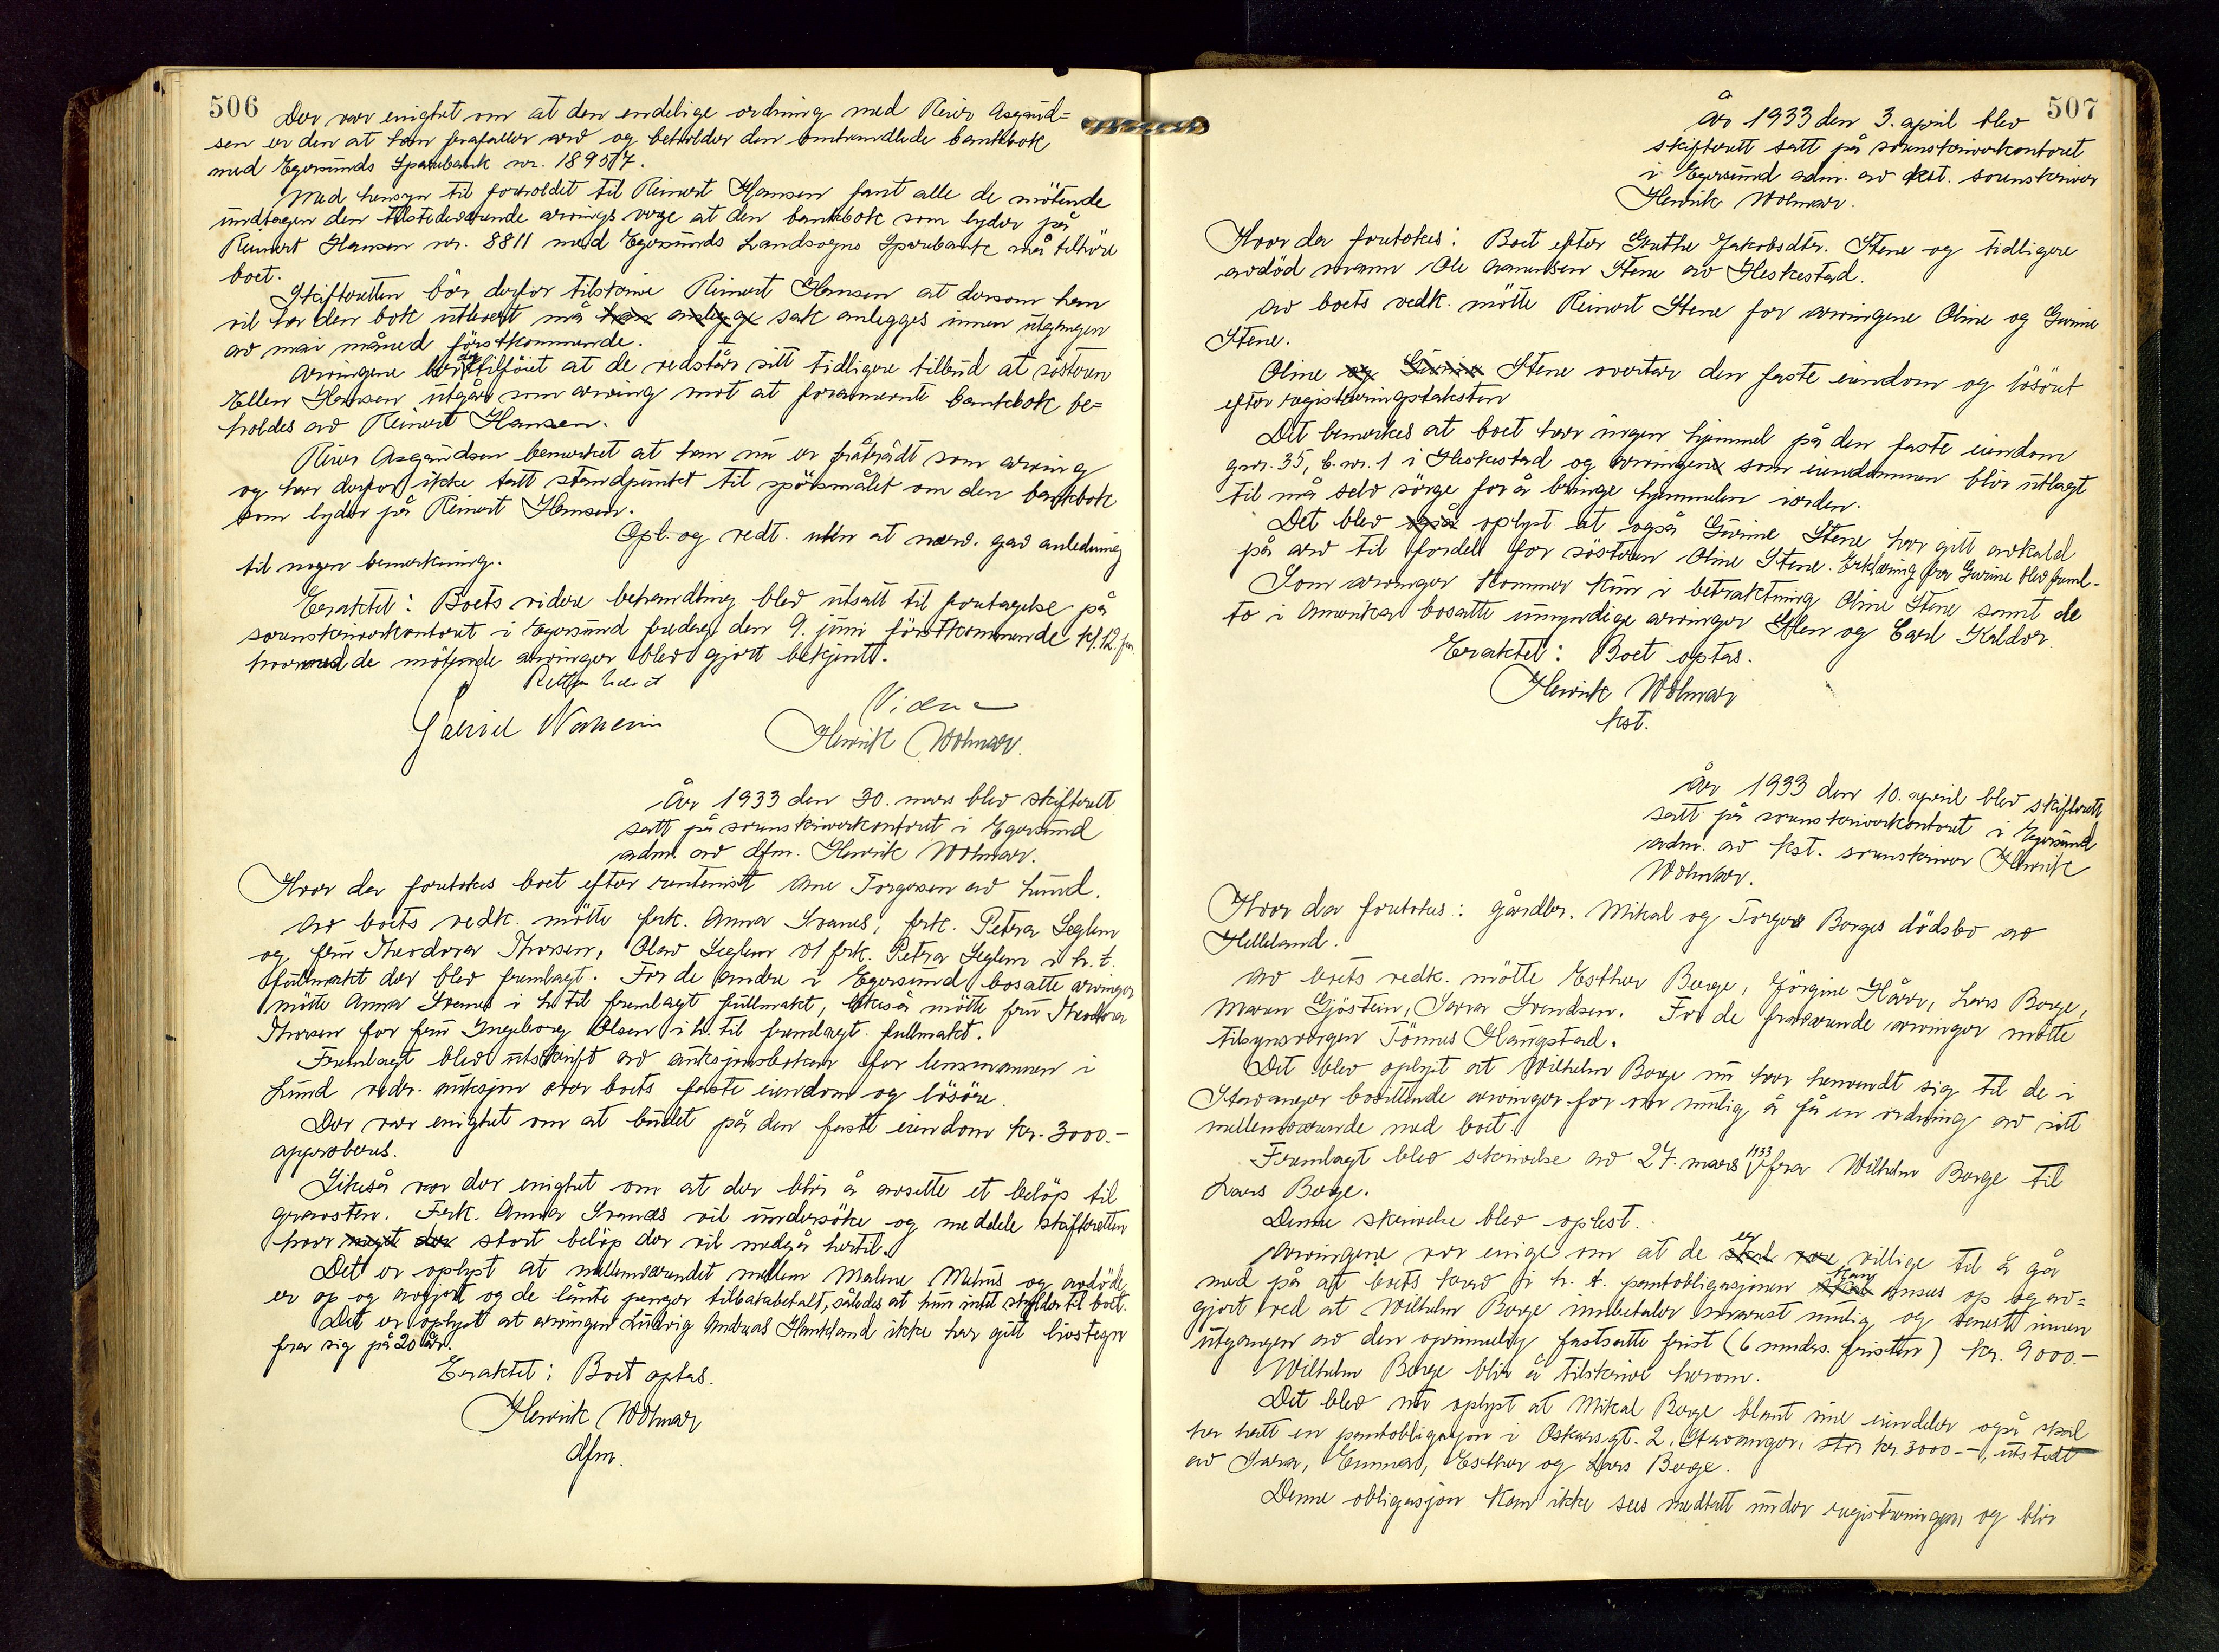 506
Der var enighet om at den endelige ordning med Reier Asgaud=
sen er den at han frafaller arv og beholder den omhandlede bankbok
med Egersunds Sparebank nr. 18957.
Med hensyn til forholdet til Reinert Hansen fant alle de møtende
undtagen den tilstedeværende arvings verge at den bankbok som lyder på
Reinert Hansen nr. 8811 med Egersunds Landsogns Sparebank må tilhøre
boet.
Skifteretten bør derfor tilskrive Reinert Hansen at dersom han
vil ha den bok utlevert må han anlegge sak anlegges innen utgangen
av mai måned førstkommende.
Arvingene tilføiet at de vedstår sitt tidligere tilbud at søsteren
Ellen Hansen utgår som arving mot at forannevnte bankbok be=
holdes av Reinert Hansen.
Reier Asgaudsen bemerket at han nu er fratrådt som arving
og har derfor ikke tatt standpunkt til spørsmålet om den bankbok
som lyder på Reinert Hansen.
Opl. og vedt. uten at nærv. gav anledning
til nogen bemerkning.
Eraktet: Boets videre behandling blev utsatt til foretagelse på
sorenskriverkontoret i Egersund fredag den 9. juni førstkommende kl. 12. fm.
hvormed de møtende arvinger blev gjort bekjent.
Retten hevet
Gabriel
Henrik Wolmar.
År 1933 den 30. mars blev skifterett
satt på sorenskriverkontoret i Egersund
adm. av dfm. Henrik Wolmar.
Hvor da foretokes boet efter rentenist Ane Torgersen av Lund.
Av boets vedk. møtte frk. Anna Svanes, frk. Petra Seglem
og fru Theodora Thorsen, Olav Seglem vf frk. Petra Seglem i h. t.
fullmakt der blev fremlagt. For de andre i Egersund bosatte arvinger
møtte Anna Svanes i h. til fremlagt fullmakt, likeså møtte fru Theodora
Thorsen for fru Ingeborg Olsen i h. til fremlagt fullmakt.
Fremlagt blev utskrift av auksjonsboken for lensmannen i
Lund vedr. auksjon over boets faste eiendom og løsøre.
Der var enighet om at budet på den faste eiendom kr. 3000.-
approberes.
Likeså var der enighet om at der blir å avsette et beløp til
gravsten. Frk. Anna Svanes vil undersøke og meddele skifteretten
hvor meget der stort beløp der vil medgå hertil.
Det er oplyst at mellemværendet mellem Malene Mehus og avdøde
er op og avgjort og de lånte penger tilbakebetalt, således at hun intet skylder til boet.
Det er oplyst at arvingen Ludvig Andreas Haukland ikke har gitt livstegn
fra sig på 20 år.
Eraktet: Boet optas.
Henrik Wolmar
dfm.
507
År 1933 den 3. april blev
skifterett satt på sorenskriverkontoret
i Egersund adm. av kst. sorenskriver
Henrik Wolmar.
Hvor da foretokes: Boet efter Grethe Jakobsdtr. Stene og tidligere
avdød mann Ole Aanensen Stene av Heskestad.
Av boets vedk. møtte Reinert Stene for arvingene Oline og Gurine
Stene.
Oline og Gurine Stene overtar den faste eiendom og løsøret
efter registreringstaksten
Det bemerkes at boet har ingen hjemmel på den faste eiendom
gnr. 35, b. nr. 1 i Heskestad og arvingene som eiendommen blir utlagt
til må selv sørge for å bringe hjemmelen iorden.
Det blev også oplyst at også Gurine Stene har gitt avkald
på arv til fordel for søsteren Oline Stene. Erklæring fra Gurine blev freml-
Som arvinger kommer kun i betraktning Oline Stene samt de
to i Amerika bosatte umyndige arvinger Ellen og Carl Kaldor.
Eraktet: Boet optas.
Henrik Wolmar
kst.
År 1933 den 10. april blev skifterett
satt på sorenskriverkontoret i Egersund
adm. av kst. sorenskriver Henrik
Wolmar.
Hvor da foretokes: gårdbr. Mikal og Torger Berges dødsbo av
Helleland.
Av boets vedk. møtte Esther Berge, Jørgine Hårr, Lars Berge,
Maren Gjøstein, Sara Svendsen. For de fraværende arvinger møtte
tilsynsvergen Tønnes Haugstad.
Det blev oplyst at Wilhelm Berge nu har henvendt sig til de i
Stavanger bosittende arvinger for om mulig å få en ordning av sitt
mellemværende med boet.
Fremlagt blev skrivelse av 27. mars 1933 fra Wilhelm Berge til
Lars Berge.
Denne skrivelse blev oplest.
Arvingene var enige om at de skal være er villige til å gå
med på at boets krav i h. t. pantobligasjonen skal kan ansees op og av=
gjort ved at Wilhelm Berge innbetaler snarest mulig og senest innen
utgangen av den oprinnelig fastsatte frist (6 mndrs. fristen) kr. 9000.-
Wilhelm Berge blir å tilskrive herom.
Det blev nu oplyst at Mikal Berge blant sine eiendeler også skal
ha hatt en pantobligasjon i Oskarsgt. 2, Stavanger, stor kr. 3000.-, utstedt
av Sara, Emma, Esther og Lars Berge.
Denne obligasjon kan ikke sees medtatt under registreringen og blir